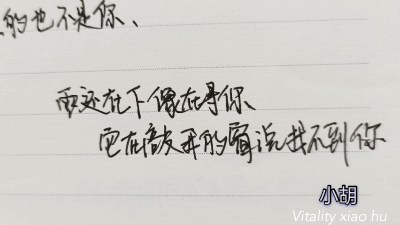 的也不是你、
雨还在下像在寻你、
它在敲开的窗说找不到你
小胡
Vitality xiao hu